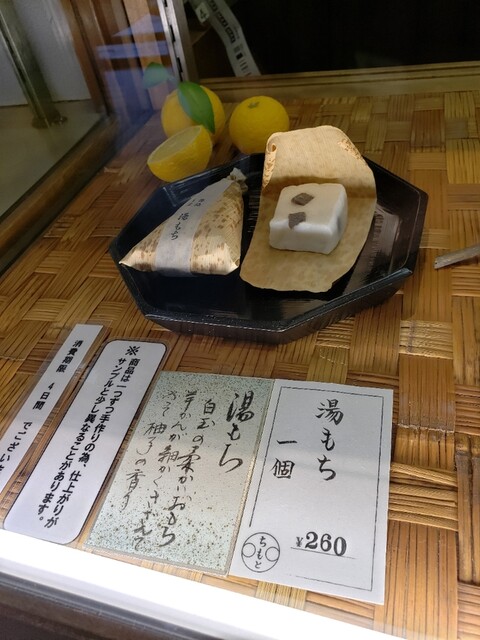 湯もち
消費期限 4日間 でございます
※ 商品は一つずつ手作りの為、仕上がりが
サンプルと少し異なることがあります。
湯もち
白玉の柔かいおもち
羊かん細かくきざんで
柚子の香り
湯もち
一個
¥260
ちもと